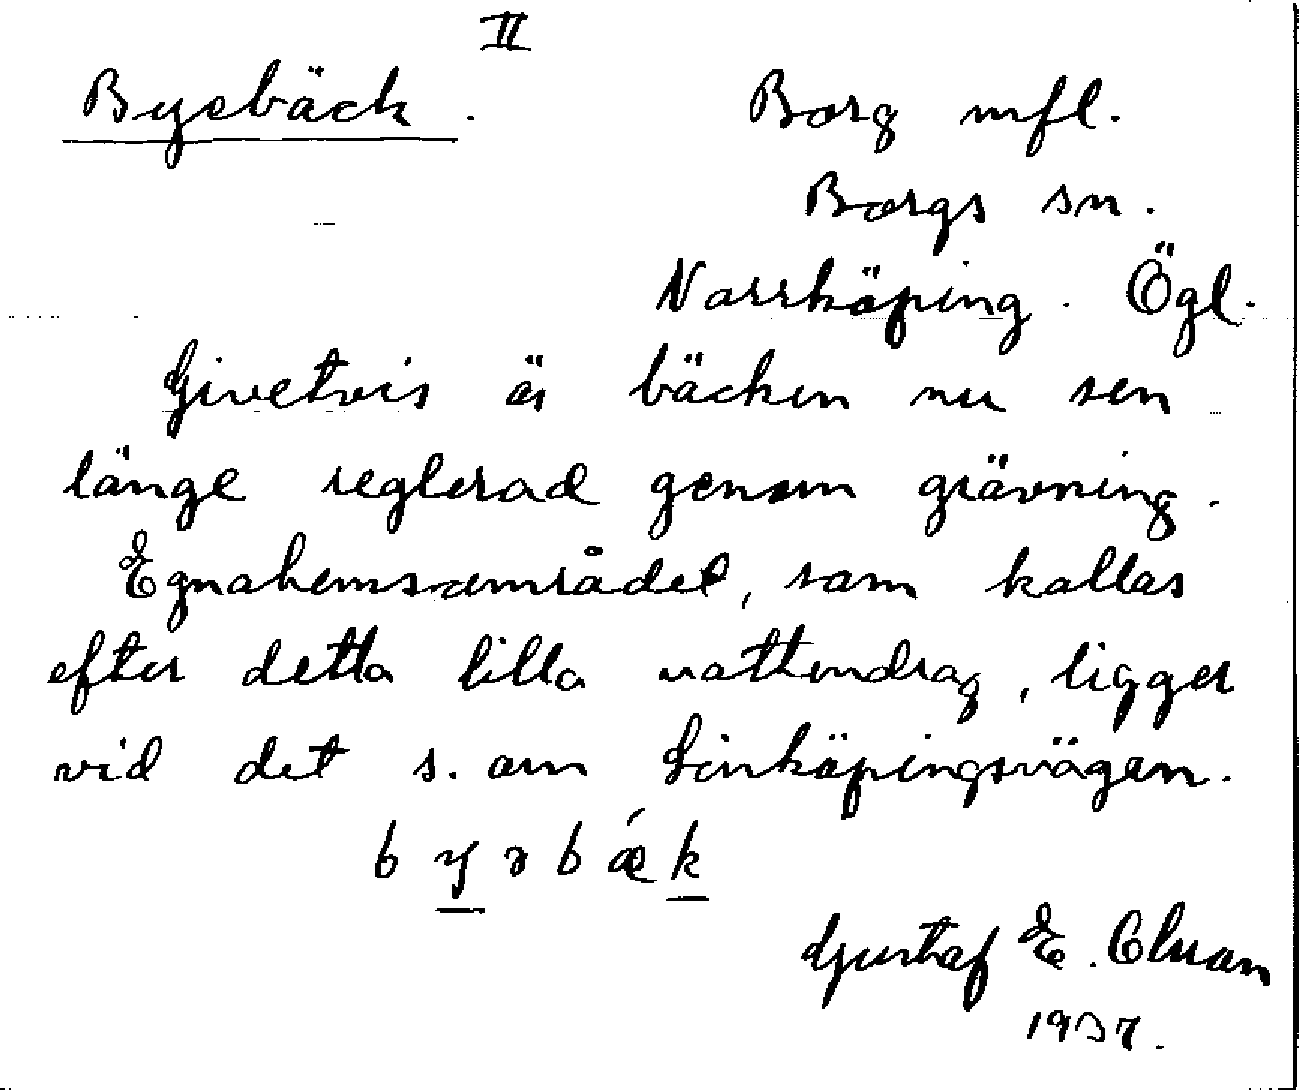 II
Byebäck.
Borg mfl.
Borgs sn.
Norrköping. Ögl.
Givetvis är bäcken nu sen
länge reglerad genom grävning.
Egnahemsområdet, som kallas
efter detta lilla vattendrag, ligger
vid det s. om Linköpingsvägen.
b y ə b ǽ k
Gustaf E.